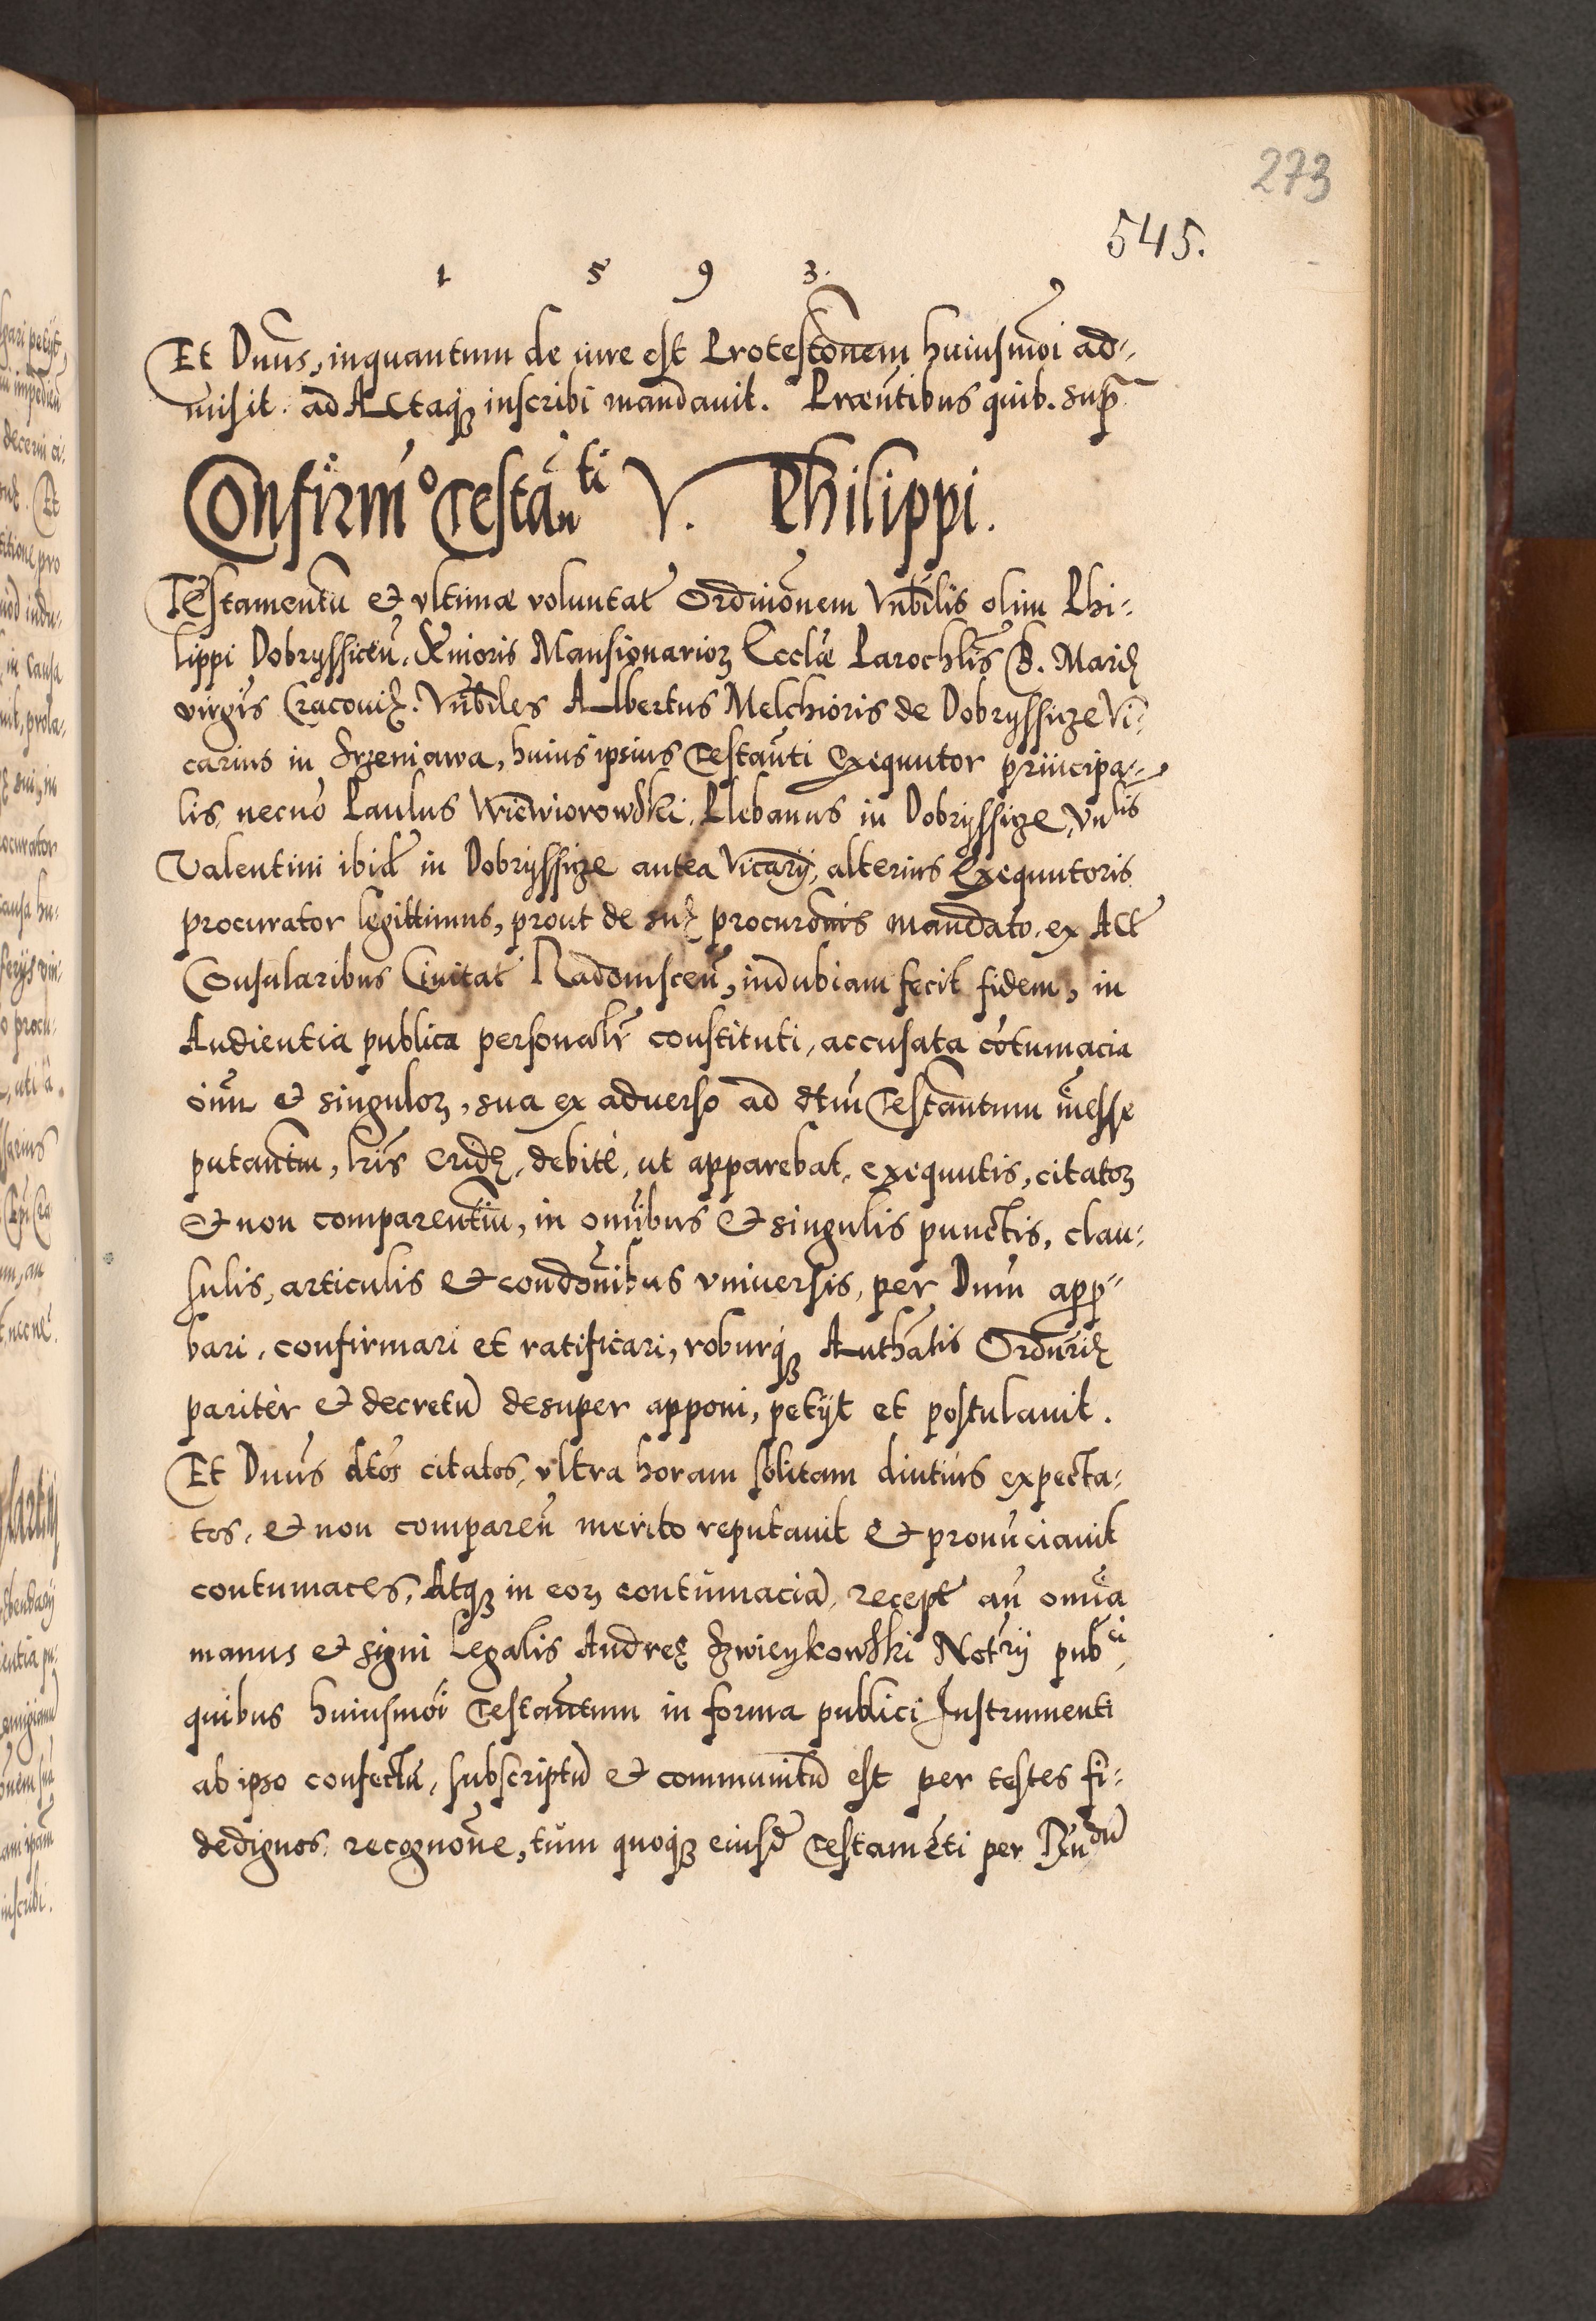 273
545.
1 5 9 3.
Et Dnūs, inquantum de iure est Protestōnem huiusmōi ad-
misit. ad Actaqꝫ inscribi mandauit. Præsentibus quib. supꝛ
Confirmō Testān̄ti V. Philippi.
Testamentū et vltimæ voluntat̄ Ordinōnem Vnb̄ilis olim Phi-
lippi Dobryssiceñ. Senioris Mansionarioꝝ Ecclīæ Parochlīs B. Marię
virgīs Cracouię. Vnb̄iles Albertus Melchioris de Dobryssize Vi-
carius in Srzeniawa, huius ipsius Testān̄ti Exequutor principa-
lis, necnō Paulus Wiewiorowski, Plebanus in Dobryssize, Vnlis
Valentini ibid̄ in Dobryssize antea Vicarij, alterius Exequutoris
procurator legittimus, prout de suę procurōnis mandato, ex Act̄
Consularibus Ciuitat̄ Radomsceñ, indubiam fecit fidem, in
Audientia publica personalr̄ constituti, accusata cōtumacia
oīum et singuloꝝ, sua ex aduerso ad dtūm Testān̄tum īnesse
putantiū, lrīs Cridę, debitè, ut apparebat, exequutis, citatoꝝ
et non comparentiū, in omībus et singulis punctis, clau-
sulis, articulis et condōnibus vniuersis, per Dnūm appꝛ-
bari, confirmari et ratificari, roburqꝫ Authātis Ordnrīę
paritèr et decretū desuper apponi, petijt et postulauit.
Et Dnūs dtōs citatos, vltra horam solitam diutius expecta-
tos, et non compareñ merito reputauit et pronūciauit
contumaces, Atqꝫ in eoꝝ contumaciā, recept̄ añ omīa
manus et signi Legalis Andreę Zwieykowski Notrīj pubci,
quibus huiusmōi Testān̄tum in forma publici Instrumenti
ab ipso confectū, subscriptū et communitū est per testes fi-
dedignos, recognōne, tùm quoqꝫ eiusd̄ Testamēti per Rn̄dū